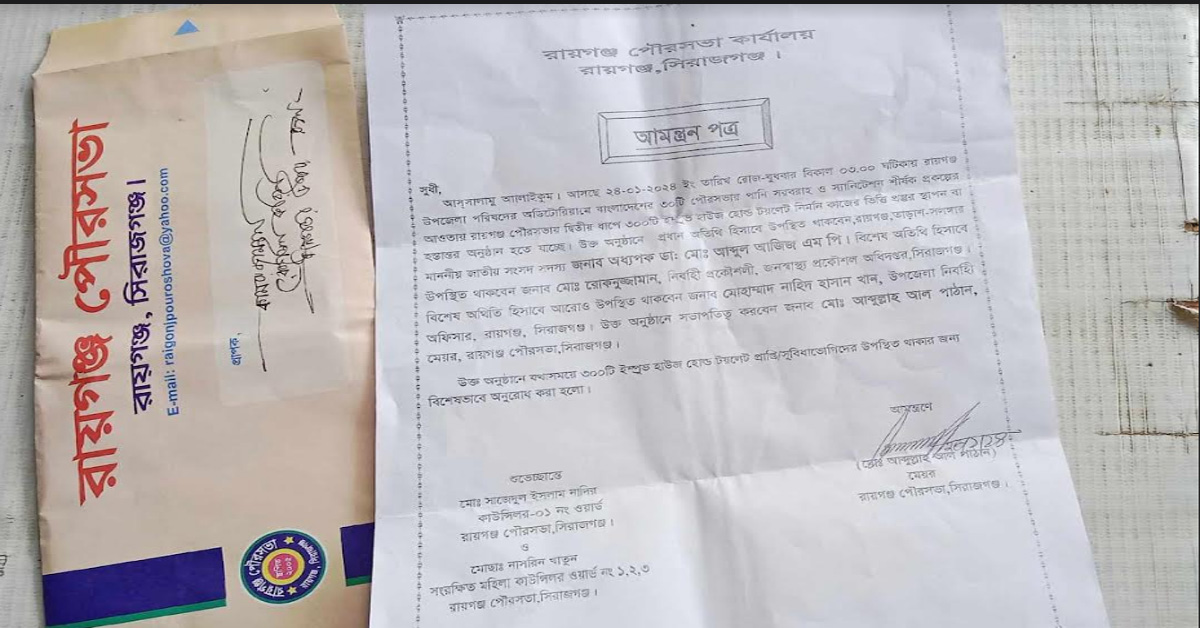 রায়গঞ্জ পৌরসভা
রায়গঞ্জ, সিরাজগঞ্জ।
E-mail: raigonjpouroshova@yahoo.com
প্রাপক,
রায়গঞ্জ পৌরসভা
স্থাপিত
২০০৫
রায়গঞ্জ পৌরসভা কার্যালয়
রায়গঞ্জ,সিরাজগঞ্জ।
আমন্ত্রন পত্র
সুধী,
আস্সালামু আলাইকুম। আসছে ২৪-০১-২০২৪ ইং তারিখ রোজ-বুধবার বিকাল ০৩.০০ ঘটিকায় রায়গঞ্জ
উপজেলা পরিষদের অডিটোরিয়ামে বাংলাদেশের ৩০টি পৌরসভায় পানি সরবরাহ ও স্যানিটেশন শীর্ষক প্রকল্পের
আওতায় রায়গঞ্জ পৌরসভায় দ্বিতীয় ধাপে ৩০০টি ইম্প্রুভ হাউজ হোল্ড টয়লেট নির্মান কাজের ভিত্তি প্রস্তর স্থাপন বা
হস্তান্তর অনুষ্ঠান হতে যাচ্ছে। উক্ত অনুষ্ঠানে প্রধান অতিথি হিসাবে উপস্থিত থাকবেন,রায়গঞ্জ,তাড়াশ-সলঙ্গার
মাননীয় জাতীয় সংসদ সদস্য জনাব অধ্যপক ডা: মোঃ আব্দুল আজিজ এম পি। বিশেষ অতিথি হিসাবে
উপস্থিত থাকবেন জনাব মোঃ রোকনুজ্জামান, নির্বাহী প্রকৌশলী, জনস্বাস্থ্য প্রকৌশল অধিদপ্তর,সিরাজগঞ্জ।
বিশেষ অথিতি হিসাবে আরোও উপস্থিত থাকবেন জনাব মোহাম্মাদ নাহিদ হাসান খান, উপজেলা নির্বাহী
অফিসার, রায়গঞ্জ, সিরাজগঞ্জ। উক্ত অনুষ্ঠানে সভাপতিত্ব করবেন জনাব মোঃ আব্দুল্লাহ আল পাঠান,
মেয়র, রায়গঞ্জ পৌরসভা,সিরাজগঞ্জ।
উক্ত অনুষ্ঠানে যথাসময়ে ৩০০টি ইম্প্রুভ হাউজ হোল্ড টয়লেট প্রাপ্তি/সুবিধাভোগিদের উপস্থিত থাকার জন্য
বিশেষভাবে অনুরোধ করা হলো।
আমন্ত্রণে
(মোঃ আব্দুল্লাহ আল পাঠান)
মেয়র
রায়গঞ্জ পৌরসভা,সিরাজগঞ্জ।
শুভেচ্ছান্তে
মোঃ সাজেদুল ইসলাম
কাউন্সিলর-০১ নং ওয়ার্ড
রায়গঞ্জ পৌরসভা,সিরাজগঞ্জ।
ও
মোছাঃ নাসরিন খাতুন
সংরেক্ষিত মহিলা কাউন্সিলর ওয়ার্ড নং ১,২,৩
রায়গঞ্জ পৌরসভা,সিরাজগঞ্জ।